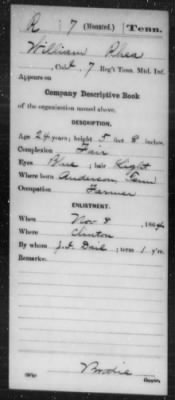 R 7 (Mounted.) Tenn.
William Rhea
, Co. I, 7 Reg't Tenn. Mtd. Inf.
Appears on
Company Descriptive Book
of the organization named above.
DESCRIPTION.
Age 24 years; height 5 feet 8 inches.
Complexion Fair
Eyes Blue; hair Light
Where born Anderson, Tenn
Occupation Farmer
ENLISTMENT.
When Nov 8, 1864.
Where Clinton
By whom J.D. Dail; term 1 y'rs.
Remarks:
Brodie
Copyist.